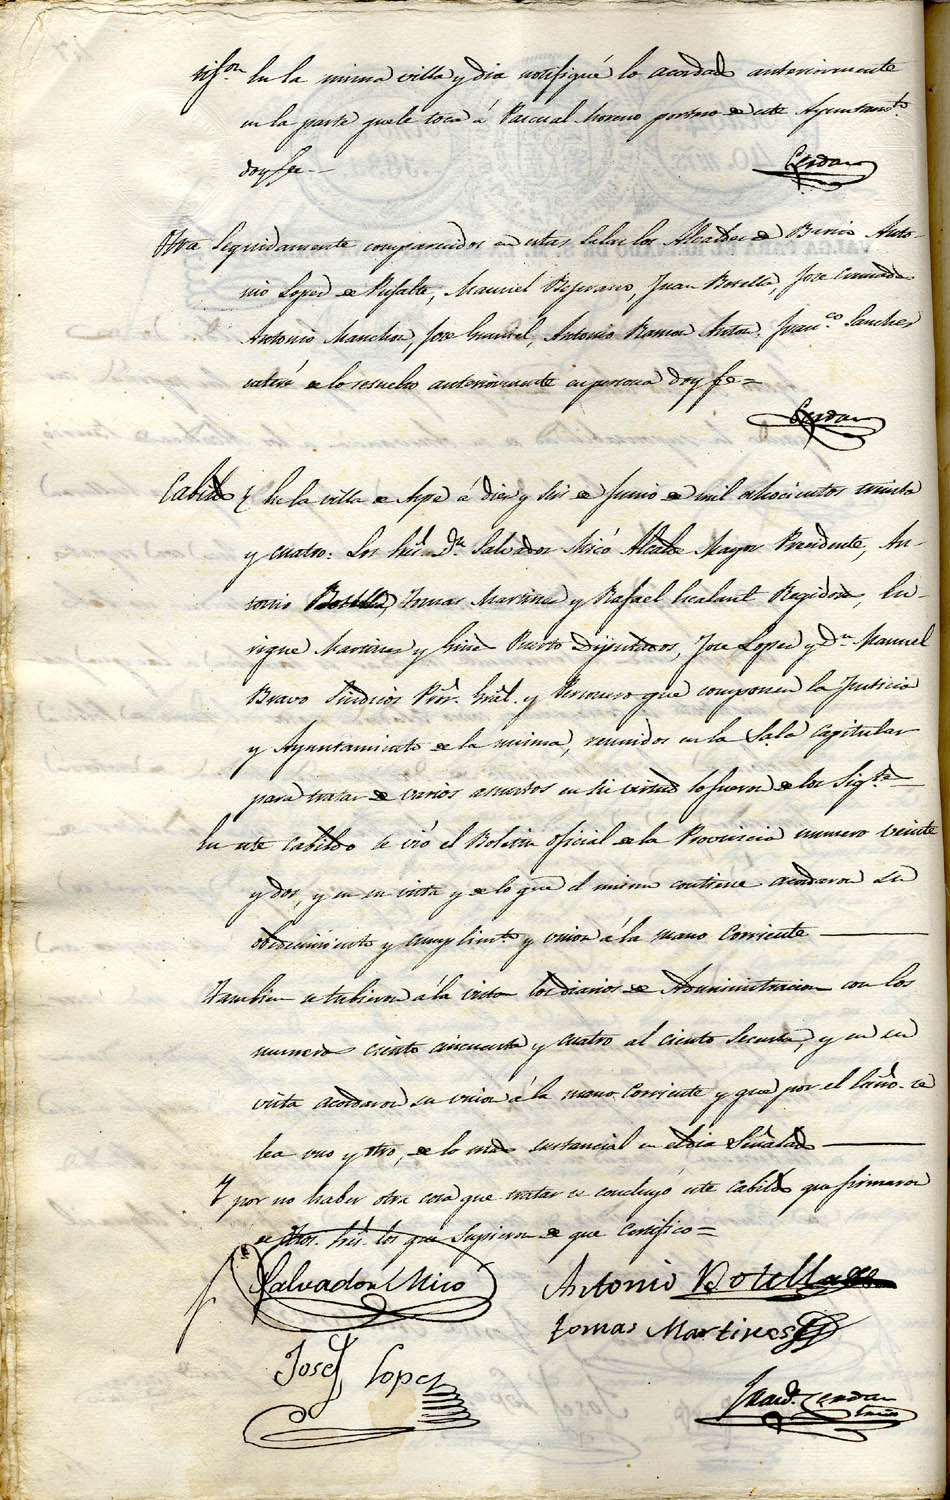 En la misma villa y dia notifiqué lo acordado anteriormente
en la parte que le toca á Pascual Moreno portero de este Ayuntamto.
doy fe.
Cerdan
Otra Seguidamente comparecidos en estas Salas los Alcaldes de Barrio Anto-
nio Lopez de Pufalte, Manuel, Juan Botella, Jose
Antonio Manchon, Jose, Antonio Ramon Anton, Franco. Sanchez
enteré de lo resuelto anteriormente en persona doy fe =
Cerdan
Cabildo En la villa de Aspe á diez y seis de Junio de mil ochocientos treinta
y cuatro: Los Sres. Dn. Salvador Micó Alcalde Mayor Presidente, An-
tonio Botella, Tomas Martinez y Rafael Regidores, En-
rique Martinez y Gines Diputados, Jose Lopez y Dn. Manuel
Bravo Sindicos Pror. Gral. y Personero que componen la Justicia
y Ayuntamiento de la misma, reunidos en la Sala Capitular
para tratar de varios asuntos en su virtud lo fueron de los Sigtes.
En este Cabildo se vió el Boletin oficial de la Provincia numero veinte
y dos, y en su vista y de lo que el mismo contiene acordaron su
obedecimiento y cumplimto. y union á la mano corriente
Tambien se tubieron á la vista los diarios de Administracion con los
numeros ciento cincuenta y cuatro al ciento secenta, y en su
vista acordaron su union á la mano corriente y que por el se
lea uno y otro, de lo mas sustancial en el dia Señalado
Y por no haber otra cosa que tratar se concluyó este Cabildo que firmaron
de dhos. Sres. los que supieron de que Certifico =
Salvador Micó Antonio Botella
Tomas Martines
Josef Lopez
Cerdan